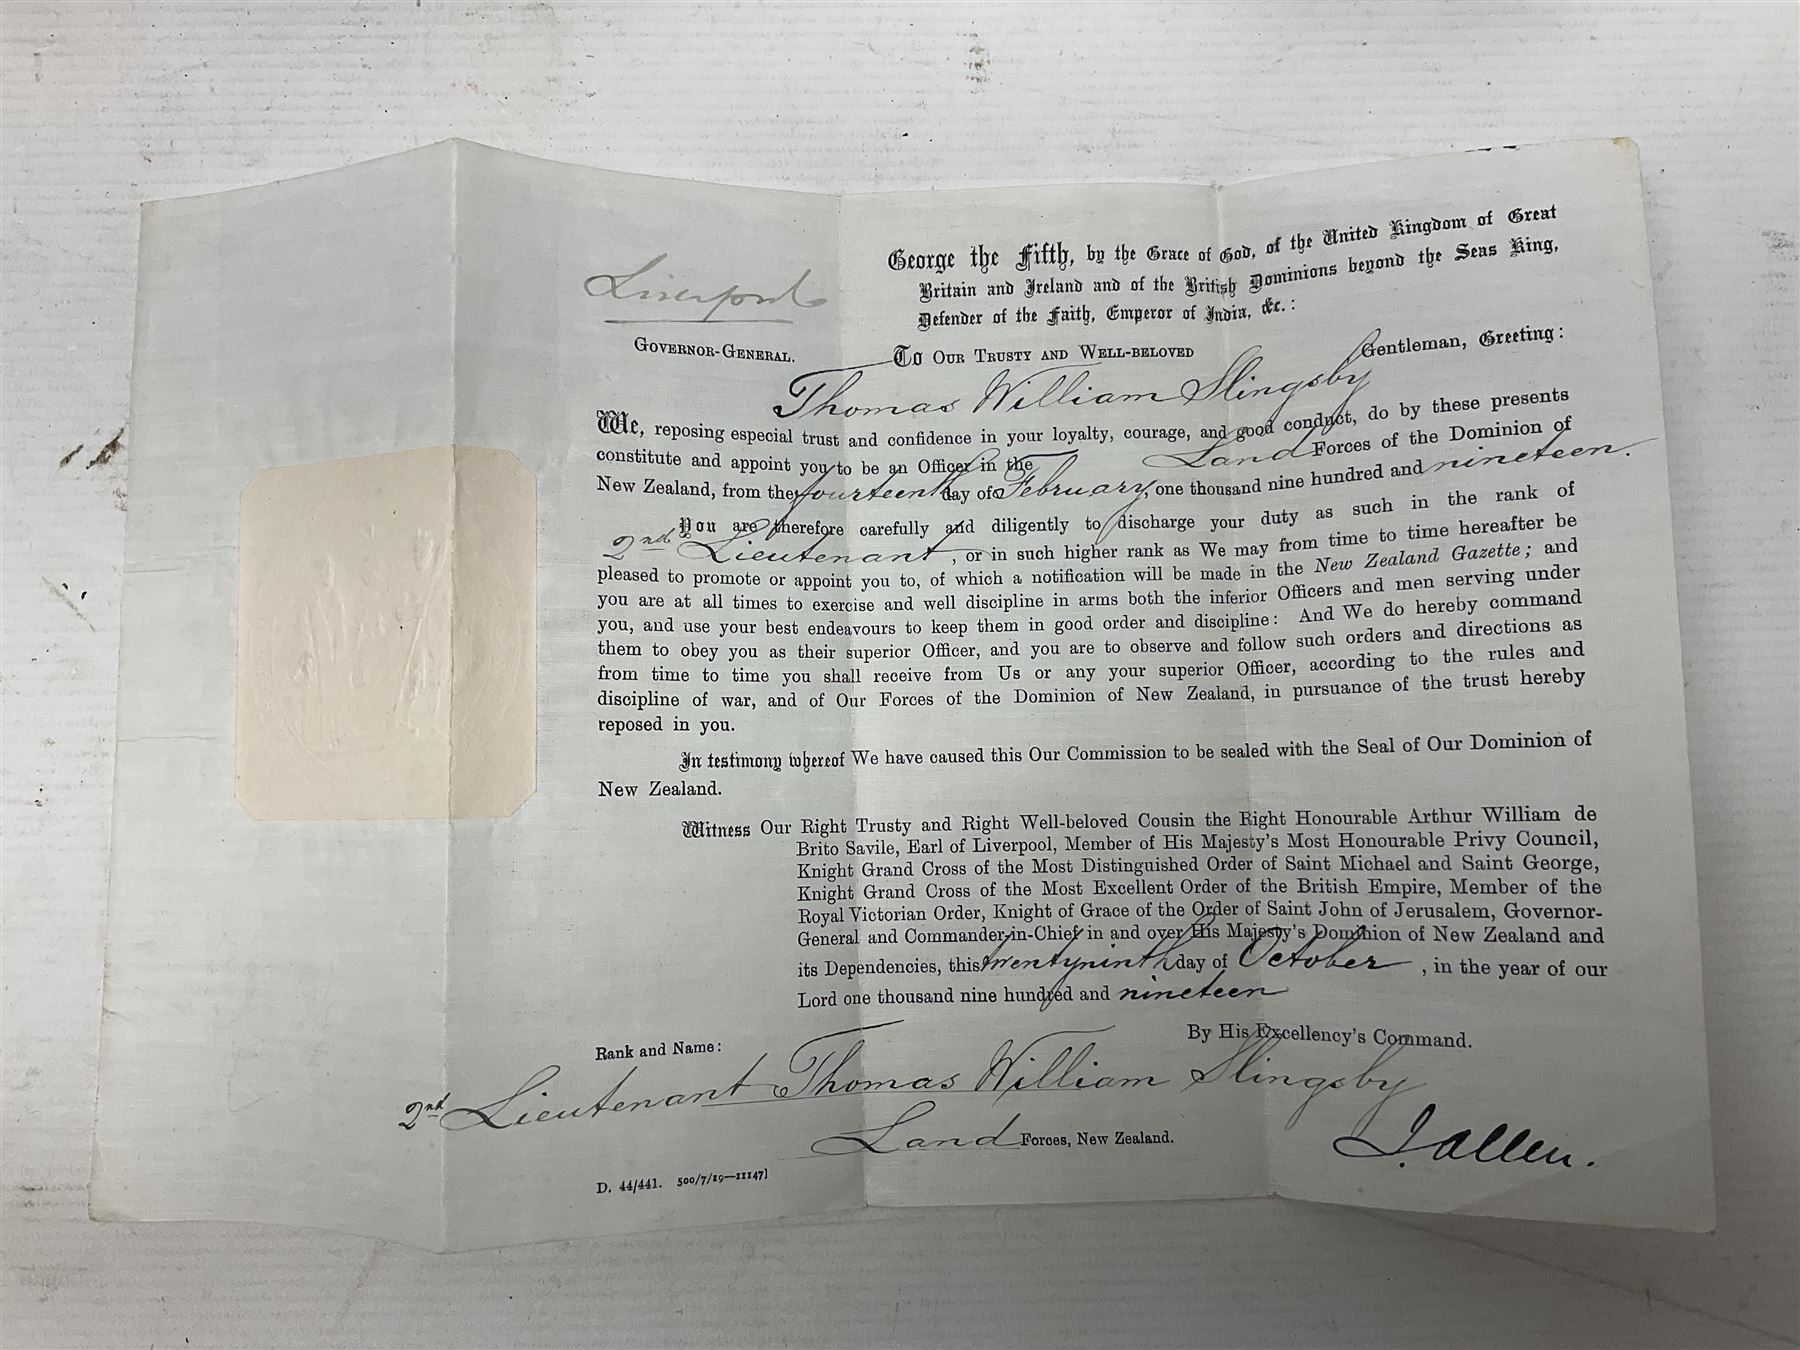 Liverpool
GOVERNOR-GENERAL.
George the Fifth, by the Grace of God, of the United Kingdom of Great
Britain and Ireland and of the British Dominions beyond the Seas King,
Defender of the Faith, Emperor of India, &c.:
To OUR TRUSTY AND WELL-BELOVED Gentleman, Greeting:
Thomas William Slingsby
We, reposing especial trust and confidence in your loyalty, courage, and good conduct, do by these presents
constitute and appoint you to be an Officer in the Land Forces of the Dominion of
New Zealand, from the fourteenth day of February, one thousand nine hundred and nineteen.
You are therefore carefully and diligently to discharge your duty as such in the rank of
2nd Lieutenant, or in such higher rank as We may from time to time hereafter be
pleased to promote or appoint you to, of which a notification will be made in the New Zealand Gazette; and
you are at all times to exercise and well discipline in arms both the inferior Officers and men serving under
you, and use your best endeavours to keep them in good order and discipline: And We do hereby command
them to obey you as their superior Officer, and you are to observe and follow such orders and directions as
from time to time you shall receive from Us or any your superior Officer, according to the rules and
discipline of war, and of Our Forces of the Dominion of New Zealand, in pursuance of the trust hereby
reposed in you.
In testimony whereof We have caused this Our Commission to be sealed with the Seal of Our Dominion of
New Zealand.
Witness Our Right Trusty and Right Well-beloved Cousin the Right Honourable Arthur William de
Brito Savile, Earl of Liverpool, Member of His Majesty's Most Honourable Privy Council,
Knight Grand Cross of the Most Distinguished Order of Saint Michael and Saint George,
Knight Grand Cross of the Most Excellent Order of the British Empire, Member of the
Royal Victorian Order, Knight of Grace of the Order of Saint John of Jerusalem, Governor-
General and Commander-in-Chief in and over His Majesty's Dominion of New Zealand and
its Dependencies, this twentyninth day of October, in the year of our
Lord one thousand nine hundred and nineteen
By His Excellency's Command.
Rank and Name:
2nd Lieutenant Thomas William Slingsby
Land Forces, New Zealand.
J. Allen.
D. 44/441. 500/7/19—11147]